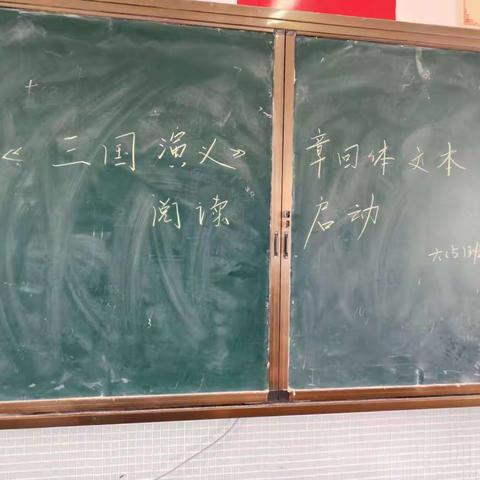 《三国演义》章回体文本
阅读启动
六(5)班